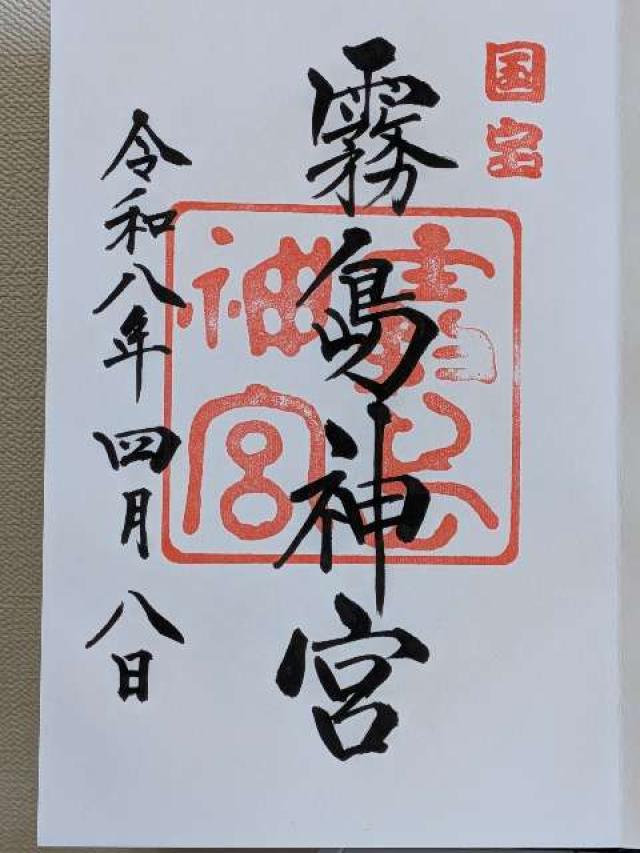 国宝
霧島神宮
霧島神宮
令和八年四月八日